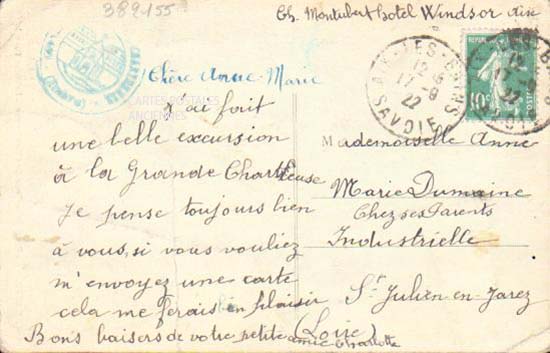 382155
Ch. Montubert hotel Windsor Aix
Chère Anne-Marie
CARTES POSTALES
ANCIENNES
J'ai fait
une belle excursion
à la Grande Chartreuse
Je pense toujours bien
à vous, si vous vouliez
m'envoyez une carte
cela me ferais bien plaisir
Bons baisers de votre petite amie Charlotte
AIX-LES-BAINS
17-9
22
SAVOIE
10c
POSTES
Mademoiselle Anne
Marie Dumaine
Chez ses Parents
Industrielle
St Julien-en-Jarez
(Loire)